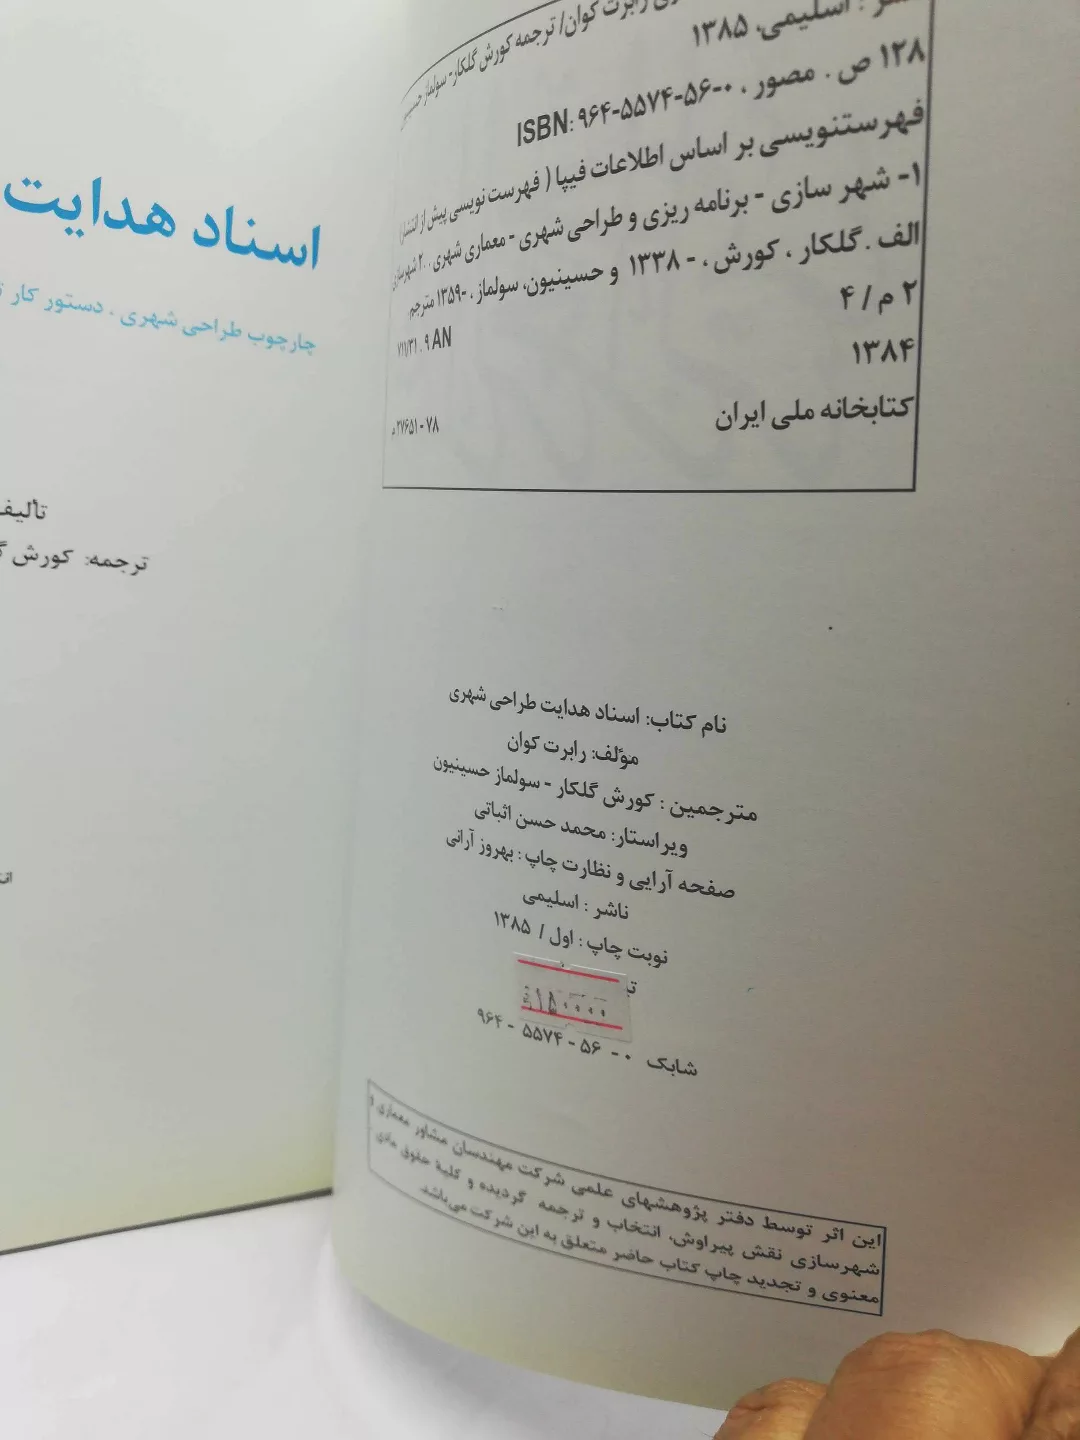 رابرت کوان/ ترجمه کورش گلکار- سولماز
ناشر : اسلیمی، ۱۳۸۵
۱۲۸ ص . مصور ،
ISBN: ۹۶۴-۵۵۷۴-۵۶-۰
فهرستنویسی بر اساس اطلاعات فیپا ( فهرست نویسی پیش از انتشار)
۱- شهر سازی - برنامه ریزی و طراحی شهری - معماری شهری . ۲۰ شهرسازی
الف . گلکار ، کورش ، - ۱۳۳۸ و حسینیون، سولماز ، -۱۳۵۹ مترجم.
۲ م / ۴
۷۱۱/۳۱ ۰۹ AN
۱۳۸۴
کتابخانه ملی ایران
۷۸-۲۷۶۵۱ م
نام کتاب: اسناد هدایت طراحی شهری
مؤلف: رابرت کوان
مترجمین : کورش گلکار - سولماز حسینیون
ویراستار: محمد حسن اثباتی
صفحه آرایی و نظارت چاپ : بهروز آرانی
ناشر : اسلیمی
نوبت چاپ : اول / ۱۳۸۵
۱۵۰۰۰۰
شابک ۰ - ۵۶ - ۵۵۷۴ - ۹۶۴
این اثر توسط دفتر پژوهشهای علمی شرکت مهندسان مشاور معماری و
شهرسازی نقش پیراوش، انتخاب و ترجمه گردیده و کلیهٔ حقوق مادی
معنوی و تجدید چاپ کتاب حاضر متعلق به این شرکت می‌باشد.
اسناد هدایت
چارچوب طراحی شهری ، دستور کار
تألیف
ترجمه: کورش